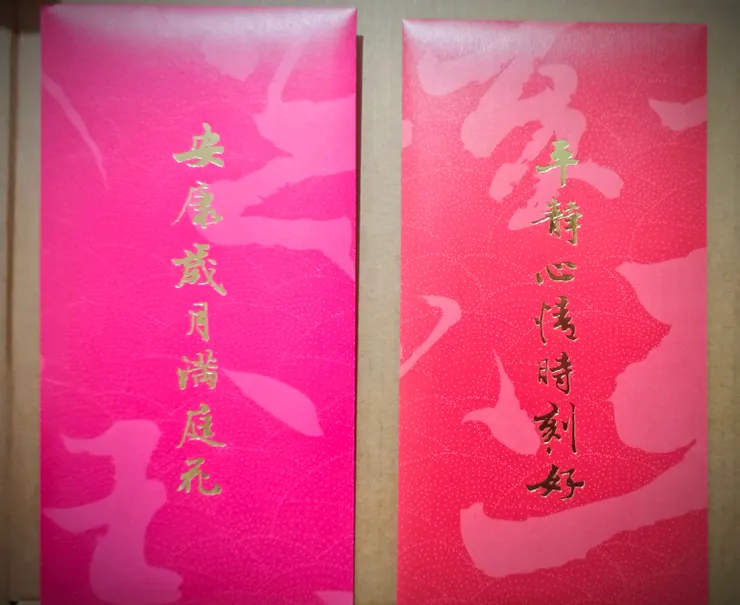 平靜心情時刻好
安康歲月滿庭花